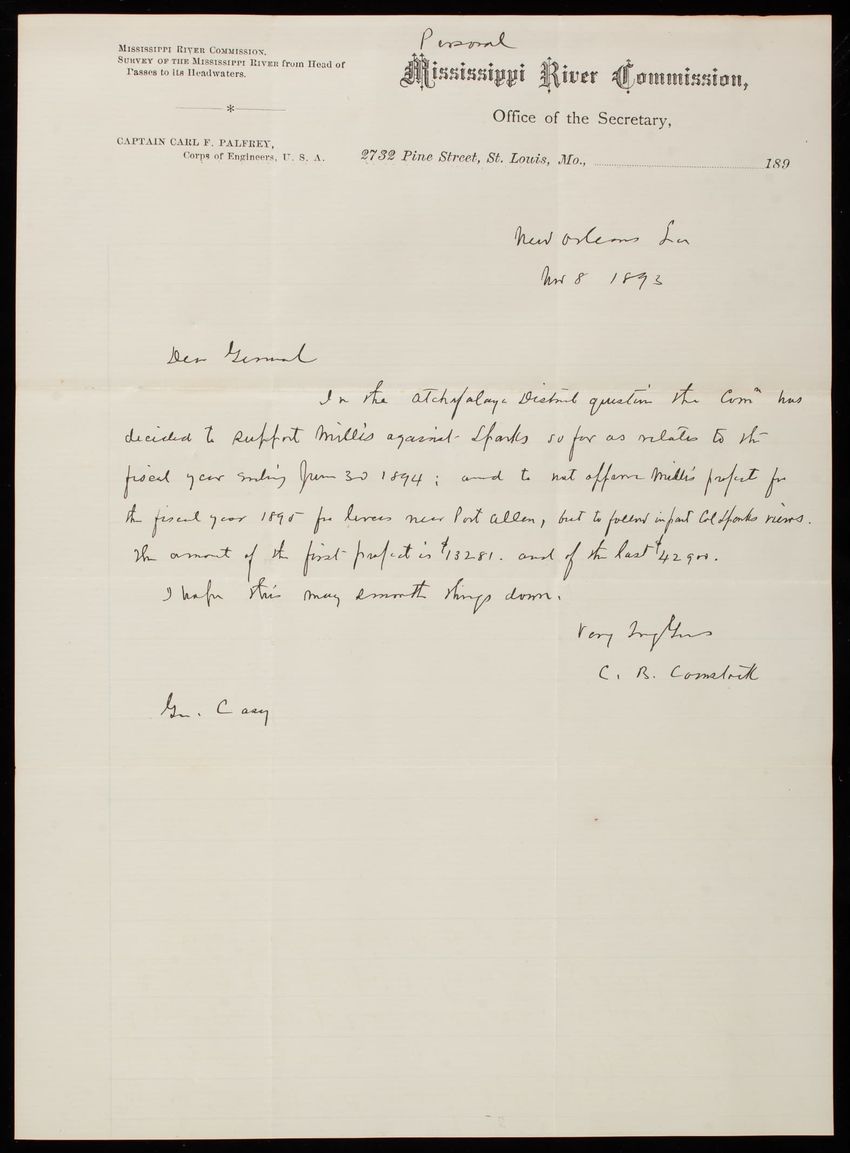 Personal
MISSISSIPPI RIVER COMMISSION.
SURVEY OF THE MISSISSIPPI RIVER from Head of
Passes to its Headwaters.
*
CAPTAIN CARL F. PALFREY,
Corps of Engineers, U. S. A.
Mississippi River Commission,
Office of the Secretary,
2732 Pine Street, St. Louis, Mo., 189
New Orleans La
Nov 8 1893
Dear General
In the Atchafalaya District question the Comn has
decided to support Millis against Sparks so far as relates to the
fiscal year ending June 30 1894; and to not approve Millis project for
the fiscal year 1895 for levees near Port Allen, but to follow in part Col Sparks views.
The amount of the first project is $13281. and of the last $42900.
I hope this may smooth things down.
Very Truly Yours
C. B. Comstock
Gen. Casey